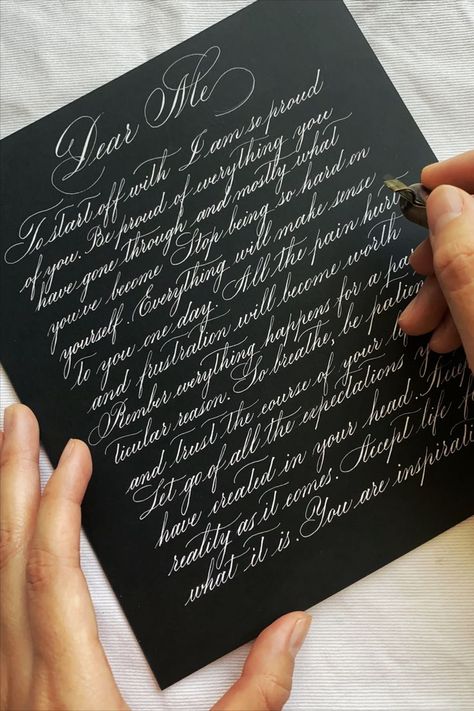 Dear Me
To start off with I am so proud
of you. Be proud of everything you
have gone through and mostly what
you've become Stop being so hard on
yourself. Everything will make sense
to you one day. All the pain hur
and frustration will become worth
Rember everything happens for a pa
ticular reason. So breathe, be patien
and trust the course of your
Let go of all the expectations
have created in your head.
reality as it comes. Accept life
what it is. You are inspirati